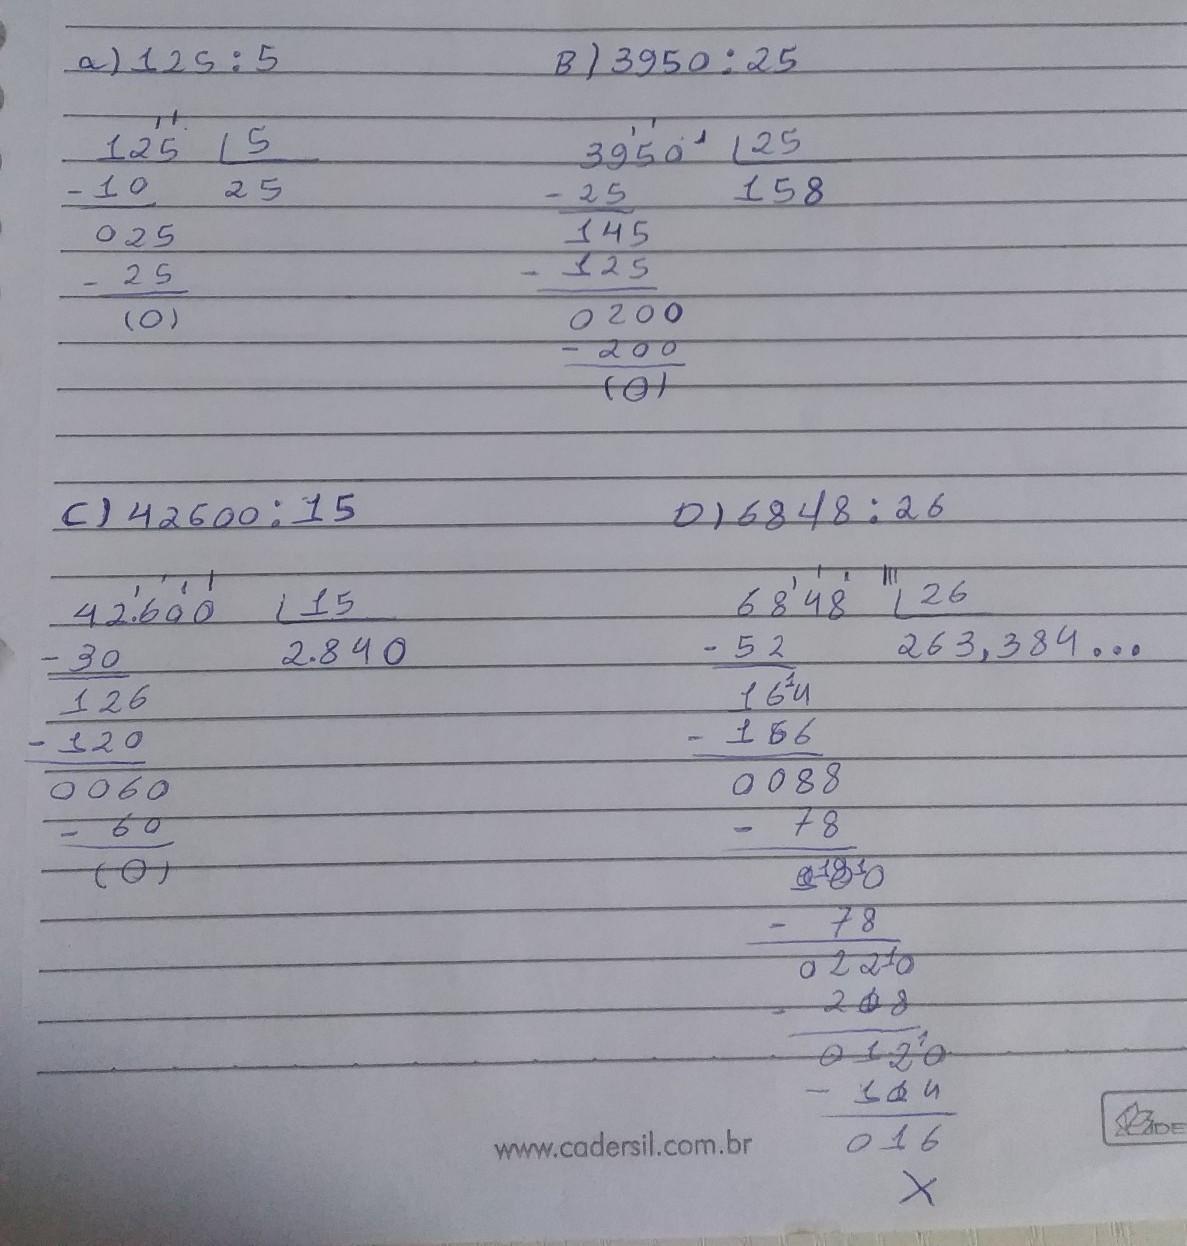 a) 125 : 5
125 5
- 10 25
025
- 25
(0)
B) 3950 : 25
3950 25
- 25 158
145
- 125
0200
- 200
(0)
C) 42600 : 15
42.600 15
- 30 2.840
126
- 120
0060
- 60
(0)
D) 6848 : 26
6848 26
- 52 263,384...
164
- 156
0088
- 78
- 78
0220
- 208
0120
- 104
016
X
www.cadersil.com.br